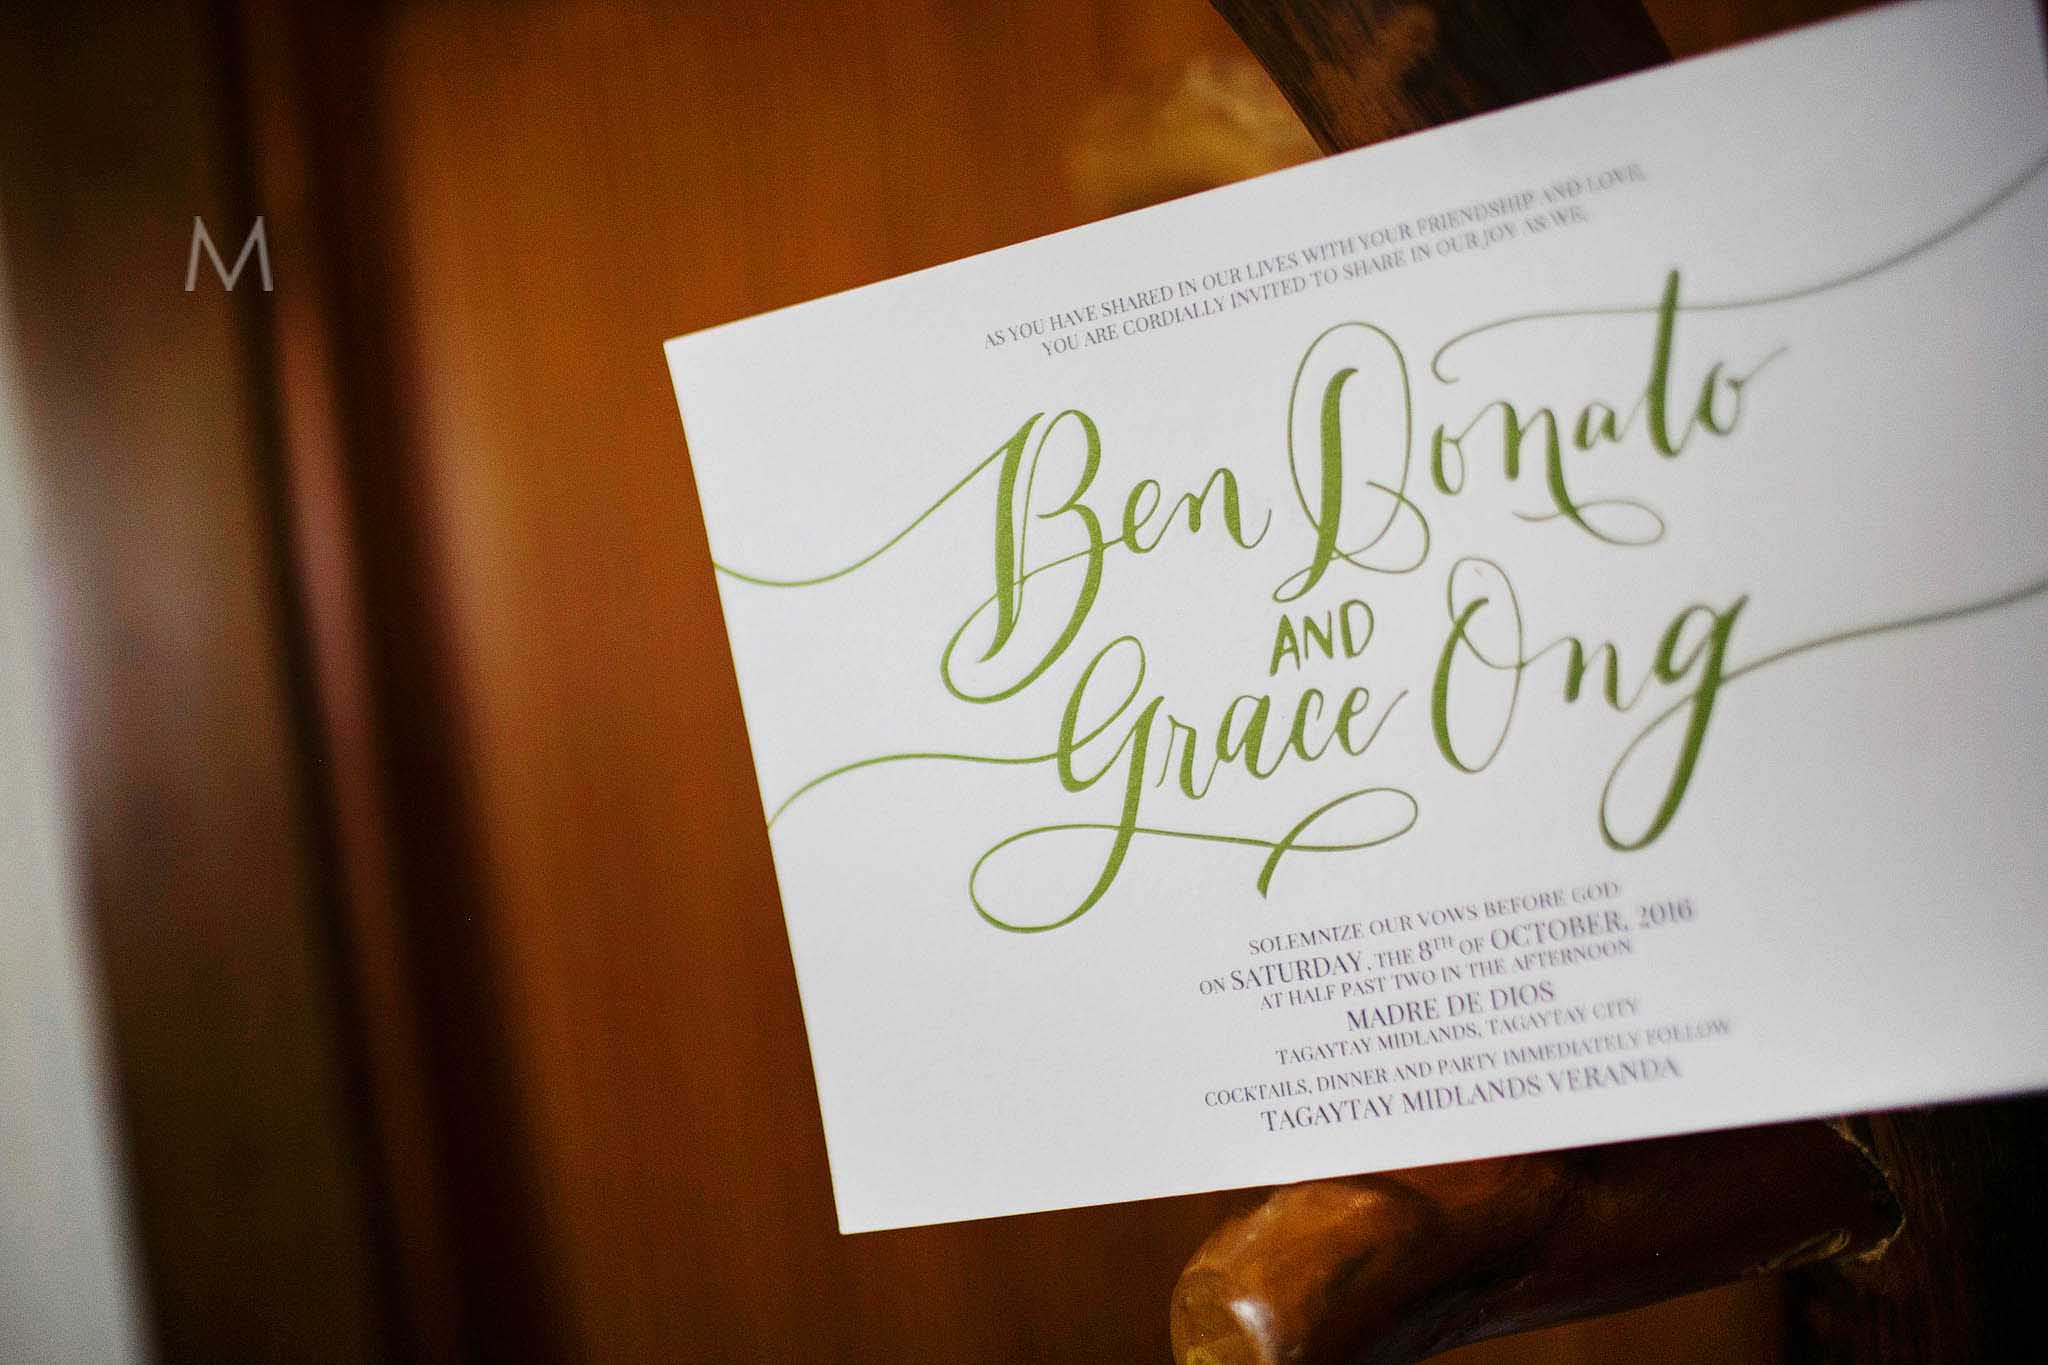 M
AS YOU HAVE SHARED IN OUR LIVES WITH YOUR FRIENDSHIP AND LOVE,
YOU ARE CORDIALLY INVITED TO SHARE IN OUR JOY AS WE,
Ben Donato
AND
Grace Ong
SOLEMNIZE OUR VOWS BEFORE GOD
ON SATURDAY, THE 8TH OF OCTOBER, 2016
AT HALF PAST TWO IN THE AFTERNOON
MADRE DE DIOS
TAGAYTAY MIDLANDS, TAGAYTAY CITY
COCKTAILS, DINNER AND PARTY IMMEDIATELY FOLLOW
TAGAYTAY MIDLANDS VERANDA